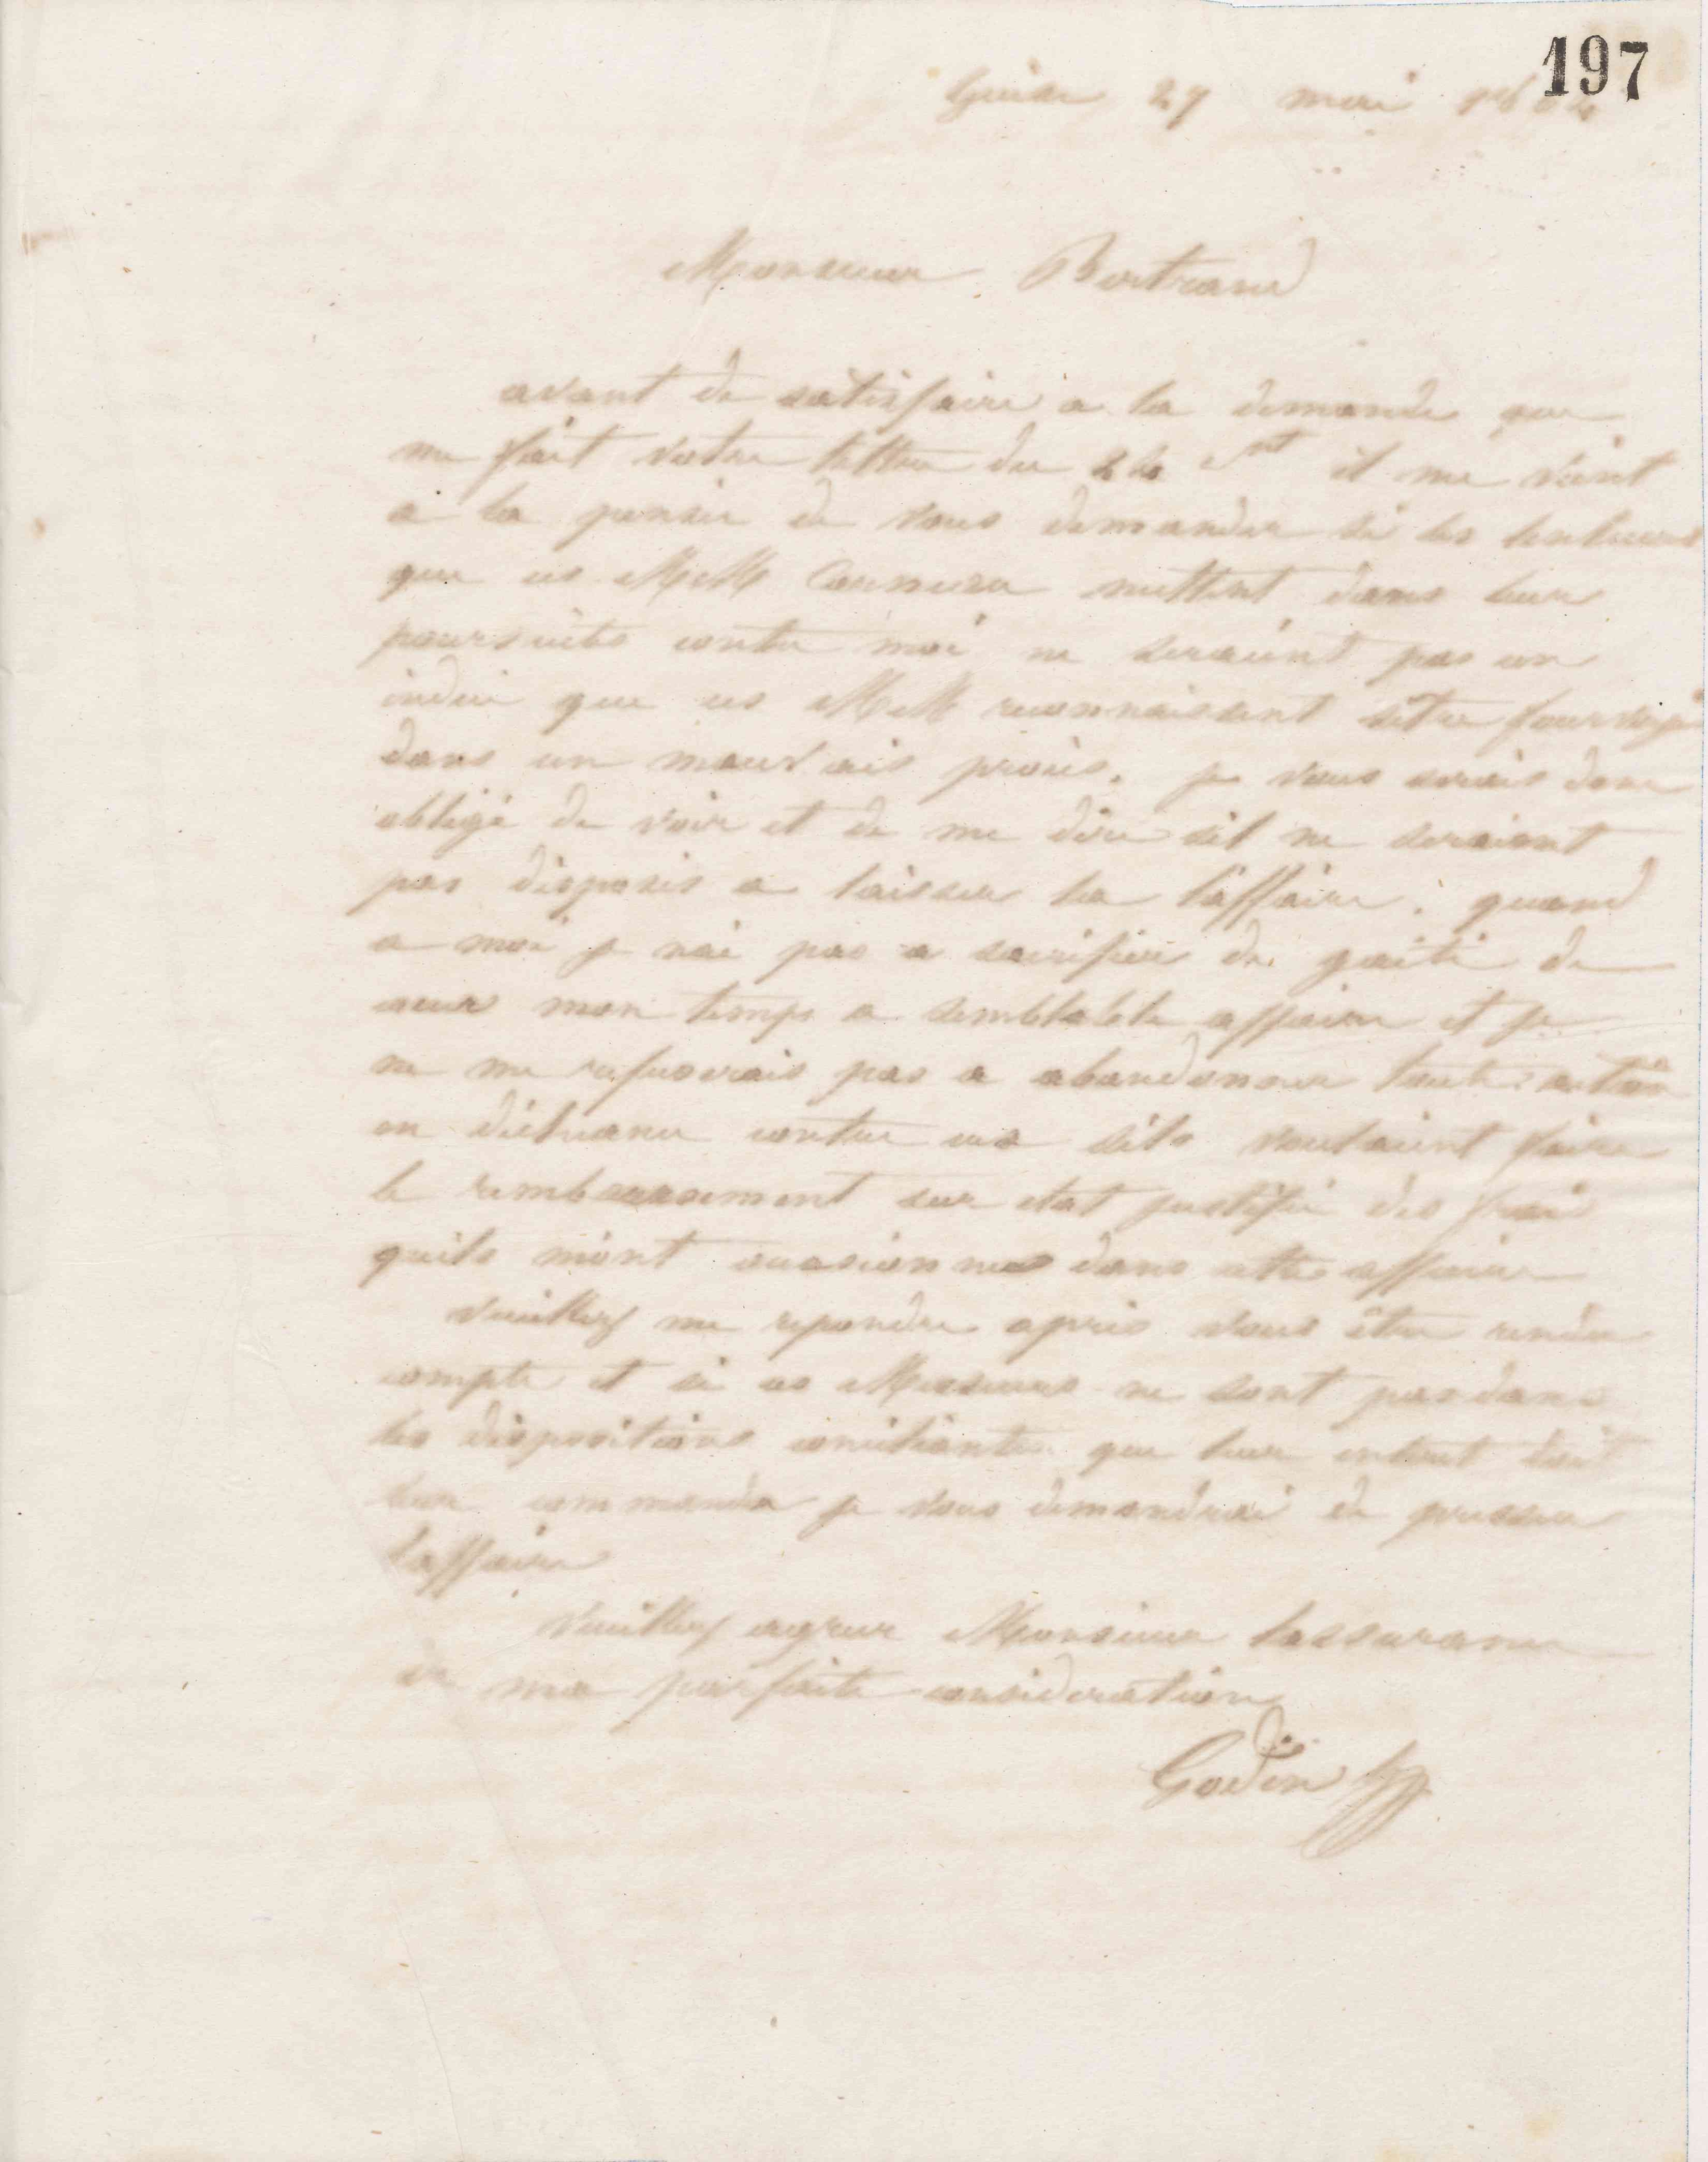 197
Guise 27 mai
Monsieur Bertrand
avant de satisfaire a la demande que
me fait votre lettre du 24 ct il me vient
a la pensée de vous demander si les lenteurs
que ces MM mettent dans leur
poursuite contre moi ne seraient pas un
indice que ces MM reconnaissent setre fourvoyé
dans un mauvais procès. je vous serais donc
obligé de voir et de me dire sil ne seraient
pas disposés a laisser la l'affaire. quand
a moi je nai pas a sacrifier de gaité de
coeur mon temps a semblable affaire et je
ne me refuserais pas a abandonner toute action
en contre eux sils voulaient faire
le remboursement sur etat justifié des frais
quils mont occasionnes dans cette affaire
Veuillez me repondre apres vous être rendu
compte et si ces Messieurs ne sont pas dans
les dispositions conciliantes que leur interet doit
leur commander je vous demandrai de presser
l'affaire
Veuillez agreer Monsieur lassurance
de ma parfaite consideration
Godin